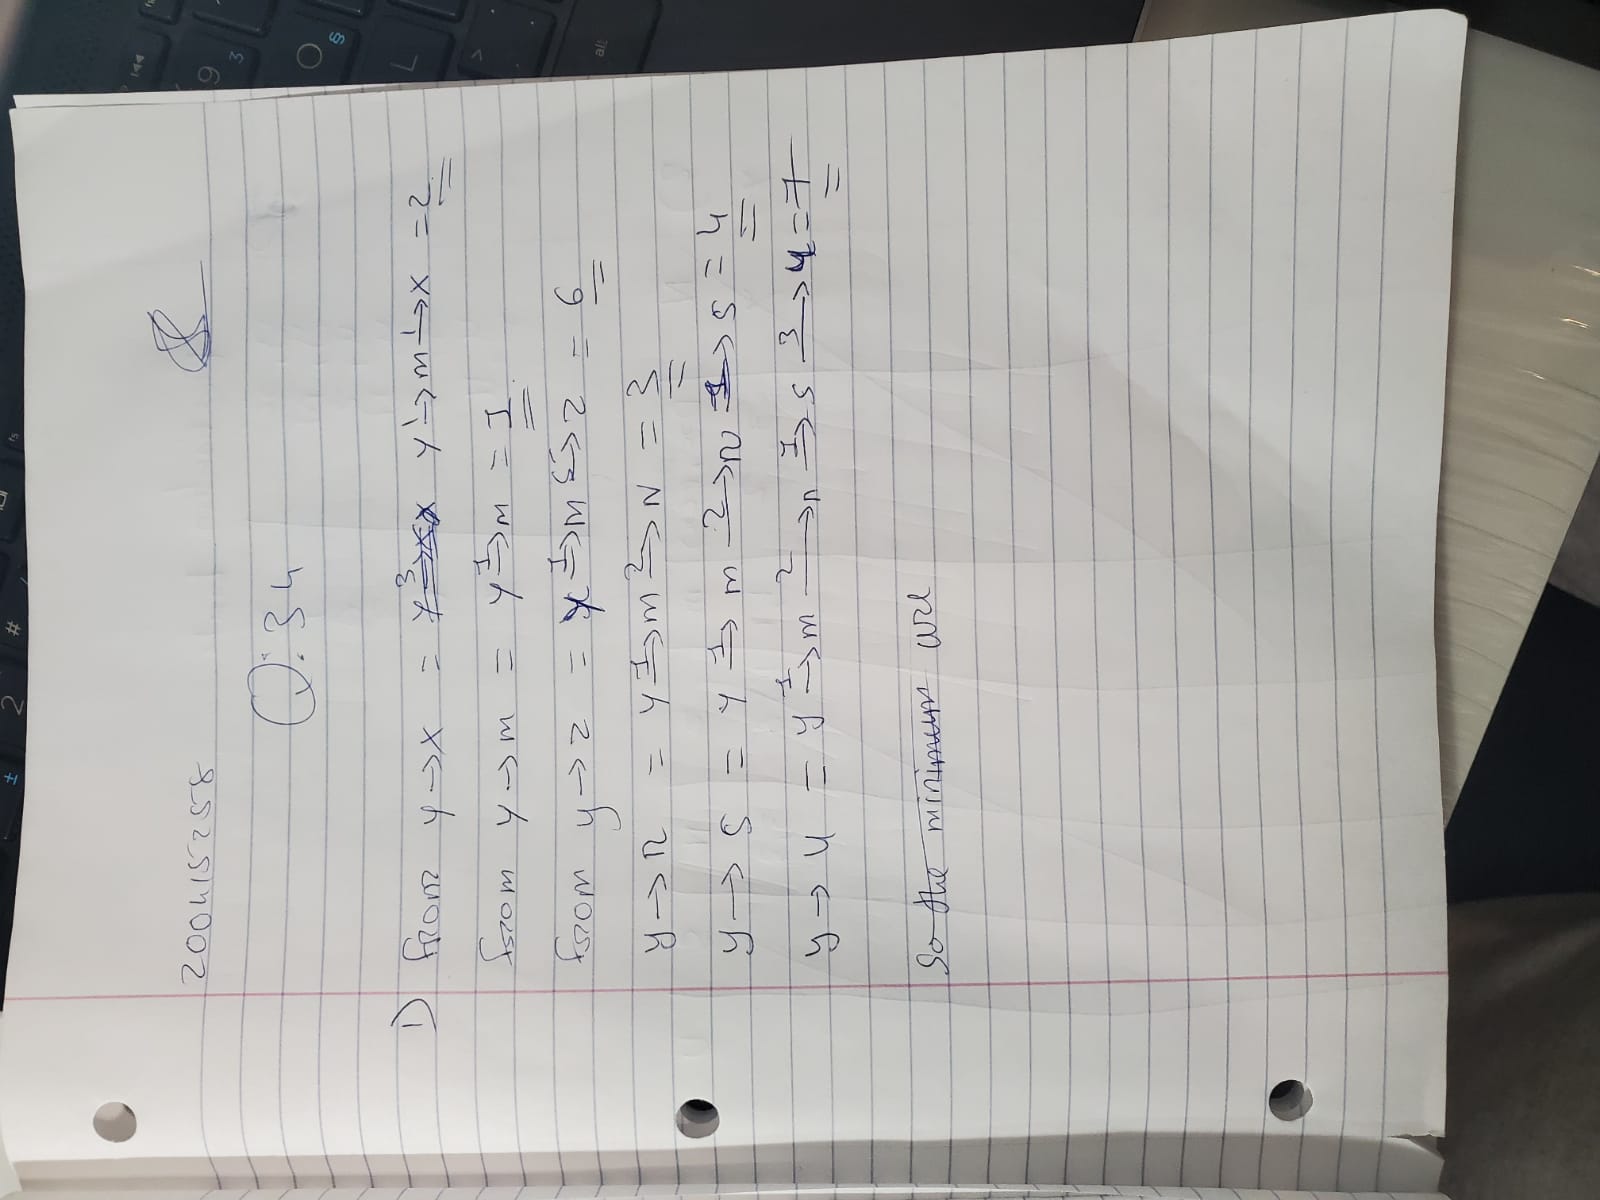 200415258
Q:34
1) from y → x = y 1→ m 1→ x = 2
from y → m = y 1→ m = 1
from y → z = y 1→ m 5→ z = 6
y → n = y 1→ m 2→ N = 3
y → s = y 1→ m 2→ n 1→ s = 4
y → u = y 1→ m 2→ n 1→ s 3→ u = 7
So the minimum